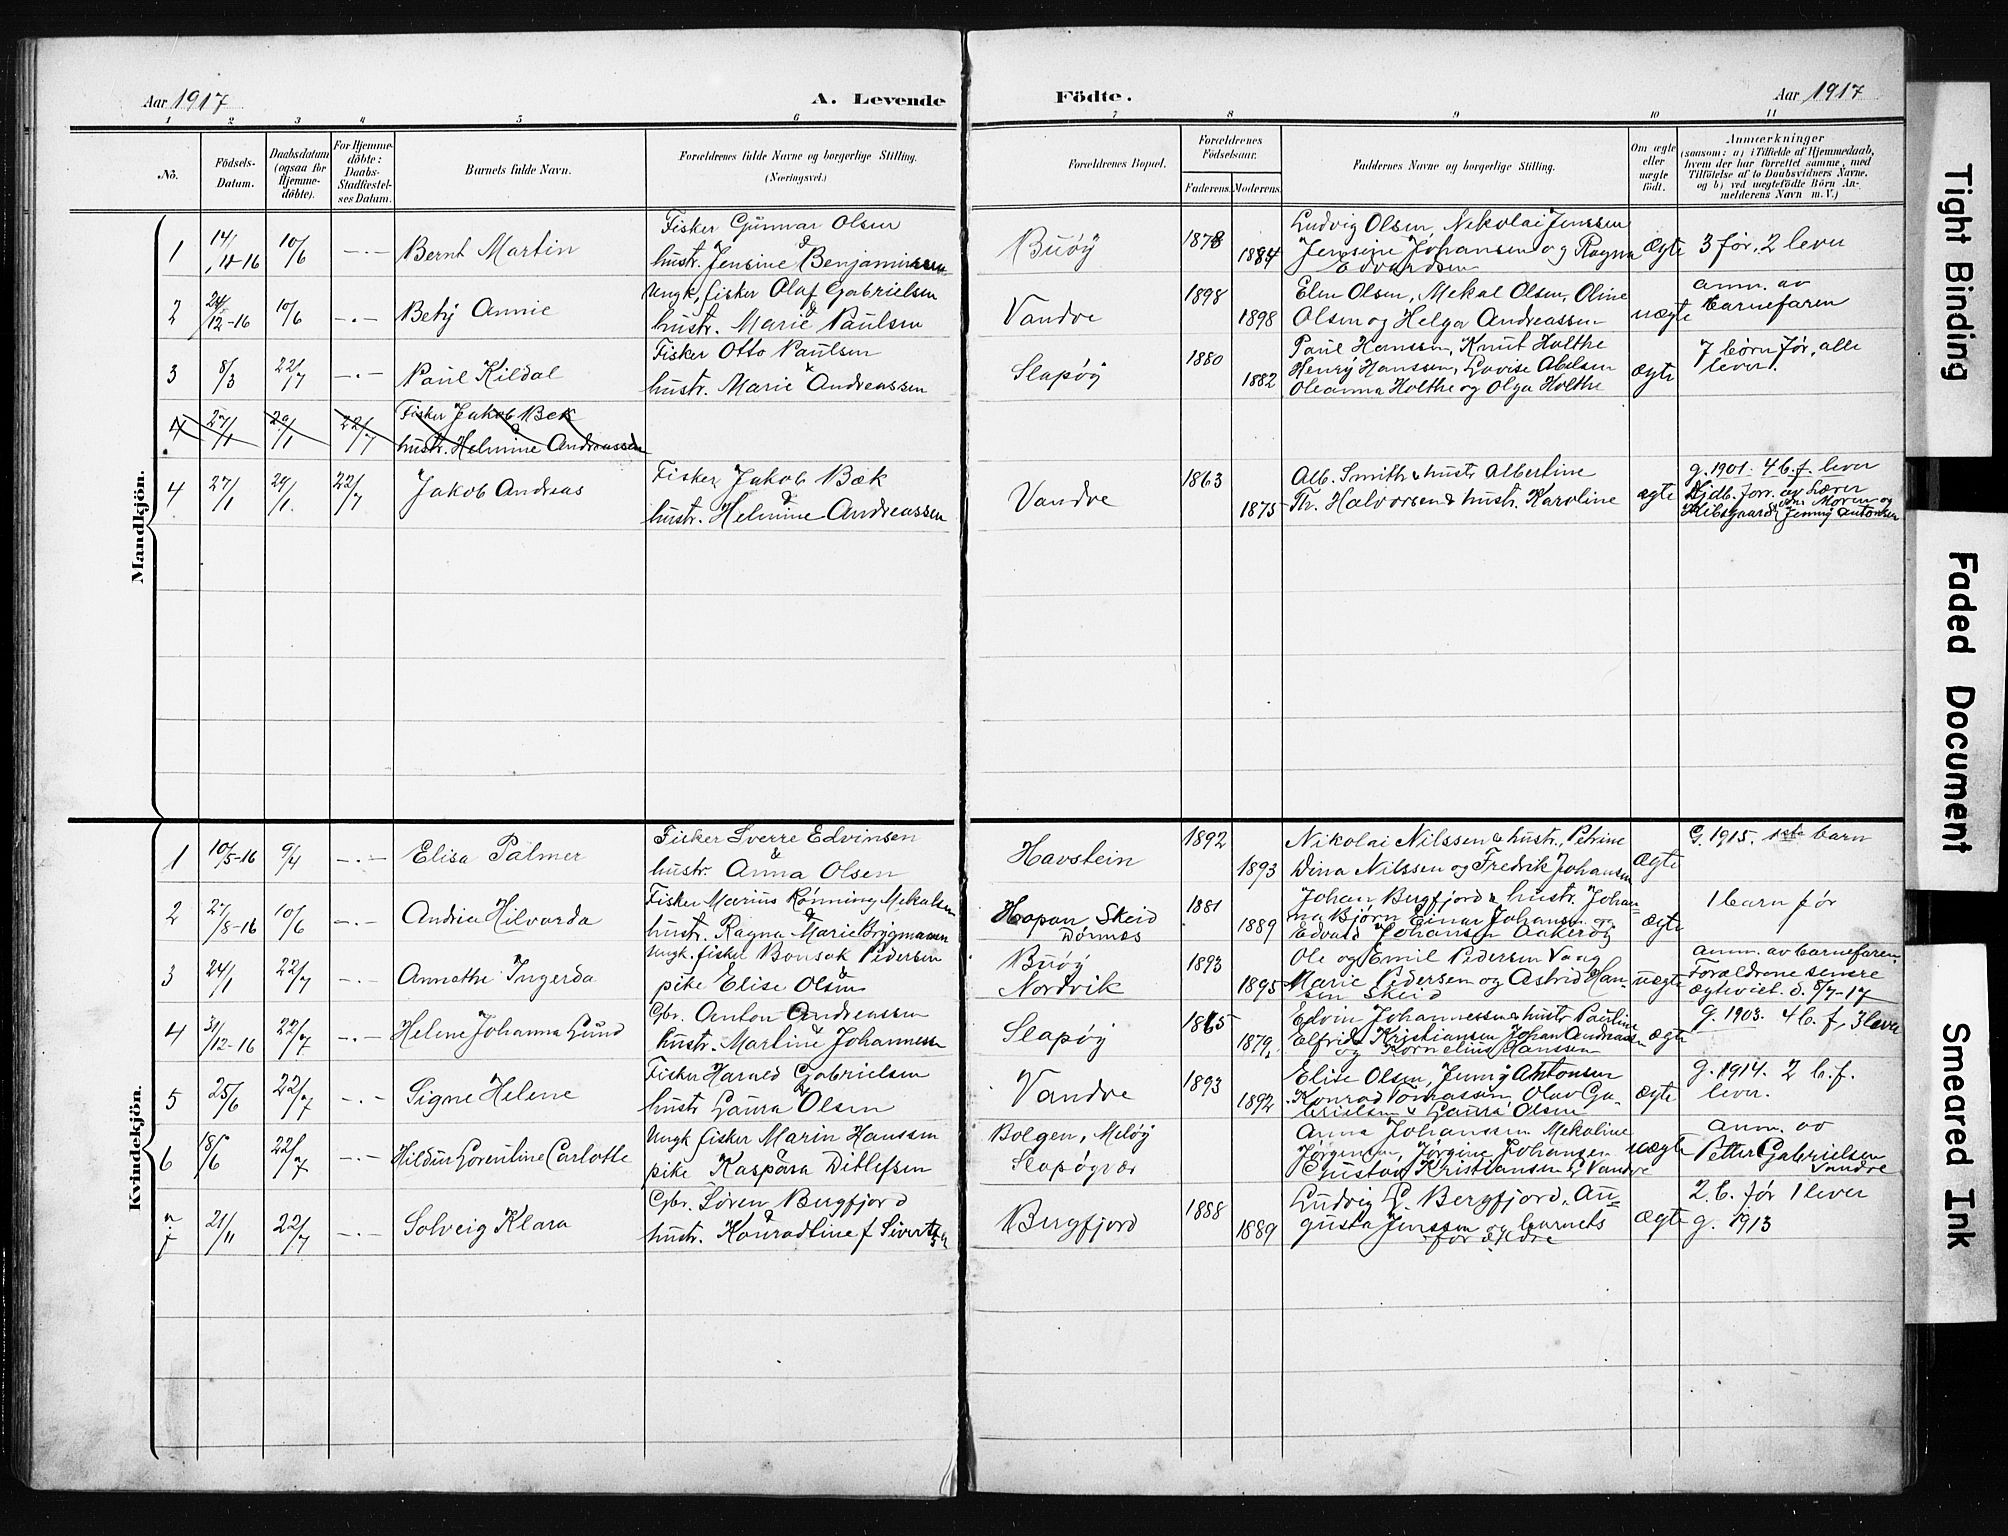 Aar 1917
A. Levende
Födte.
Aar 1917
1 2 3 4 5 6 7 8 9 10 11
No.
Födsels-
Datum.
Daabsdatum
(ogsaa för
Hjemme-
döbte).
For Hjemme-
döbte:
Daabs-
Stadfæstel-
ses Datum.
Barnets fulde Navn.
Forældrenes fulde Navne og borgerlige Stilling.
(Næringsvei.)
Forældrenes Bopæl.
Forældrenes
Födselsaar.
Faderens. Moderens.
Faddernes Navne og borgerlige Stilling.
Om ægte
eller
uægte
födt.
Anmærkninger
(saasom: a) i Tilfælde af Hjemmedaab,
hvem der har forrettet samme, med
Tilföielse af to Daabsvidners Navne,
og b) ved uægtefödte Börn An-
melderens Navn m. V.)
Mandkjön.
1 14/10-16 10/6 -.- Bernt Martin
Fisker Gunnar Olsen
&
hustr. Jensine Benjaminsen
Buøy
1878
1884
Ludvig Olsen, Nikolai Jenssen
Jensine Johansen og Ragna
Edvardsen
Ægte
3 før, 2 lever
2 24/12-16 10/6 -.- Betzy Annie
Ungk, fisker Olaf Gabrielsen
&
hustr. Marie Paulsen
Vandve
1898
1898
Elen Olsen, Mekal Olsen, Oline
Olsen og Helga Andreassen
uægte
anm. av
barnefaren
3 8/3 22/7 -.- Paul Kildal
Fisker Otto Paulsen
&
hustr. Marie Andreassen
Slapøy
1880
1882
Paul Hanssen, Knut Holthe
Henry Hanssen, Lovise Abelsen
Oleanna Holthe og Olga Holthe
Ægte
7 børn før, alle
lever.
4 27/1 29/1 22/7
Fisker Jakob Bek
&
hustr. Helmine Andreassen
4 27/1 29/1. 22/7 Jakob Andreas
Fisker Jakob Bæk
&
hustr. Helmine Andreassen
Vandve
1863
1875
Alb. Smith & hustr. Albertine
Th. Halvorsen & hustr. Karoline
ægte
g. 1901. 4 b. f. lever
Hjdb. forr. av Lærer
Hibsgaard Moren og
Jenny Antonsen
Kvindekjön.
1 10/5-16 9/4 -.- Elisa Palmer
Fisker Sverre Edvinsen
&
hustr. Anna Olsen
Havstein
1892
1893
Nikolai Nilssen & hustr. Petrine
Dina Nilssen og Fredrik Johansen
ægte
G. 1915. 1ste barn
2 27/8-16 10/6 -.- Andrea Hilvarda
Fisker Marius Rønning Mekalsen
&
hustr. Ragna Marie Brygmann
Hopan Skeid
Dønnæs
1881
1889
Johan Bergfjord & hustr. Johan-
na Bjørn Einar Johansen og
Edvard Johansen Aakerøy
ægte
1 barn før
3 24/1 22/7 -.- Annethe Ingerda
Ungk. fisker Bonsak Pedersen
&
pike Elise Olsen
Buøy
Nordvik
1893
1895
Ole og Emil Pedersen Vaag
Marie Pedersen og Astrid Han-
sen Skeid
uægte
anm. av barnefaren.
Forældrene senere
ægteviet d. 8/7-17
4 31/12-16 22/7 -.- Helene Johanna Lund
Gbr. Anton Andreassen
&
hustr. Martine Johannessen
Slapøy
1865
1879.
Edvin Johannessen & hustr. Pauline
Elfrida Kristiansen Johan Andreassen
og Kornelius Hanssen
ægte
g. 1903. 4 b. f, 3 lever
5 25/6 22/7 -.- Signe Helene
Fisker Harald Gabrielsen
&
hustr Laura Olsen
Vandve
1893
1892
Elise Olsen, Jenny Antonsen
Konrad Tomassen, Olav Ga-
brielsen & Laura Olsen
ægte
g. 1914. 2 b. f.
lever.
6 18/6 22/7 -.- Hildur Lorentine Carlotte
Ungk fisker Marin Hanssen
&
pike Kaspara Ditlefsen
Bolgen, Meløy
Slapøyvær
Anna Johanssen Mekaline
Jørgensen, Jørgine Johansen
Gustav Kristiansen Vandve
uægte
anm. av
Petter Gabrielsen
Vandve
7 21/11 22/7 -.- Solveig Klara
Gbr. Søren Bergfjord
&
hustr. Konradine f Sivertsen
Bergfjord
1888
1889
Ludvig G. Bergfjord, Au-
gusta Jenssen og barnets
forældre
ægte
2. b. før 1 lever
g. 1913
Tight Binding
Faded Document
Smeared Ink